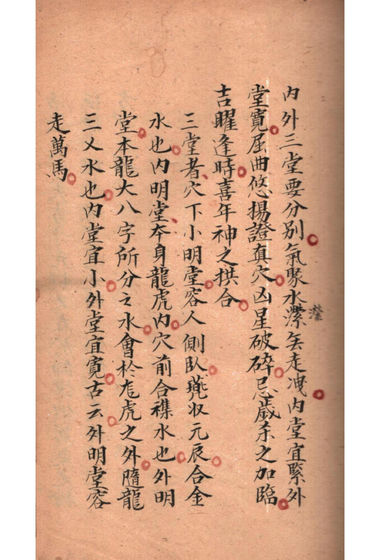 內外三堂要分別氣聚水瀠無走洩內堂宜緊外
瀠
堂寬屈曲悠揚證真穴凶星破碎忌歲杀之加臨
吉曜逢時喜年神之拱合
三堂者穴下小明堂容人側臥兠收元辰合金
水也內明堂夲身龍虎內穴前合襟水也外明
堂本龍大八字所分之水會於龙虎之外隨龍
三乂水也內堂宜小外堂宜寬古云外明堂容
走萬馬